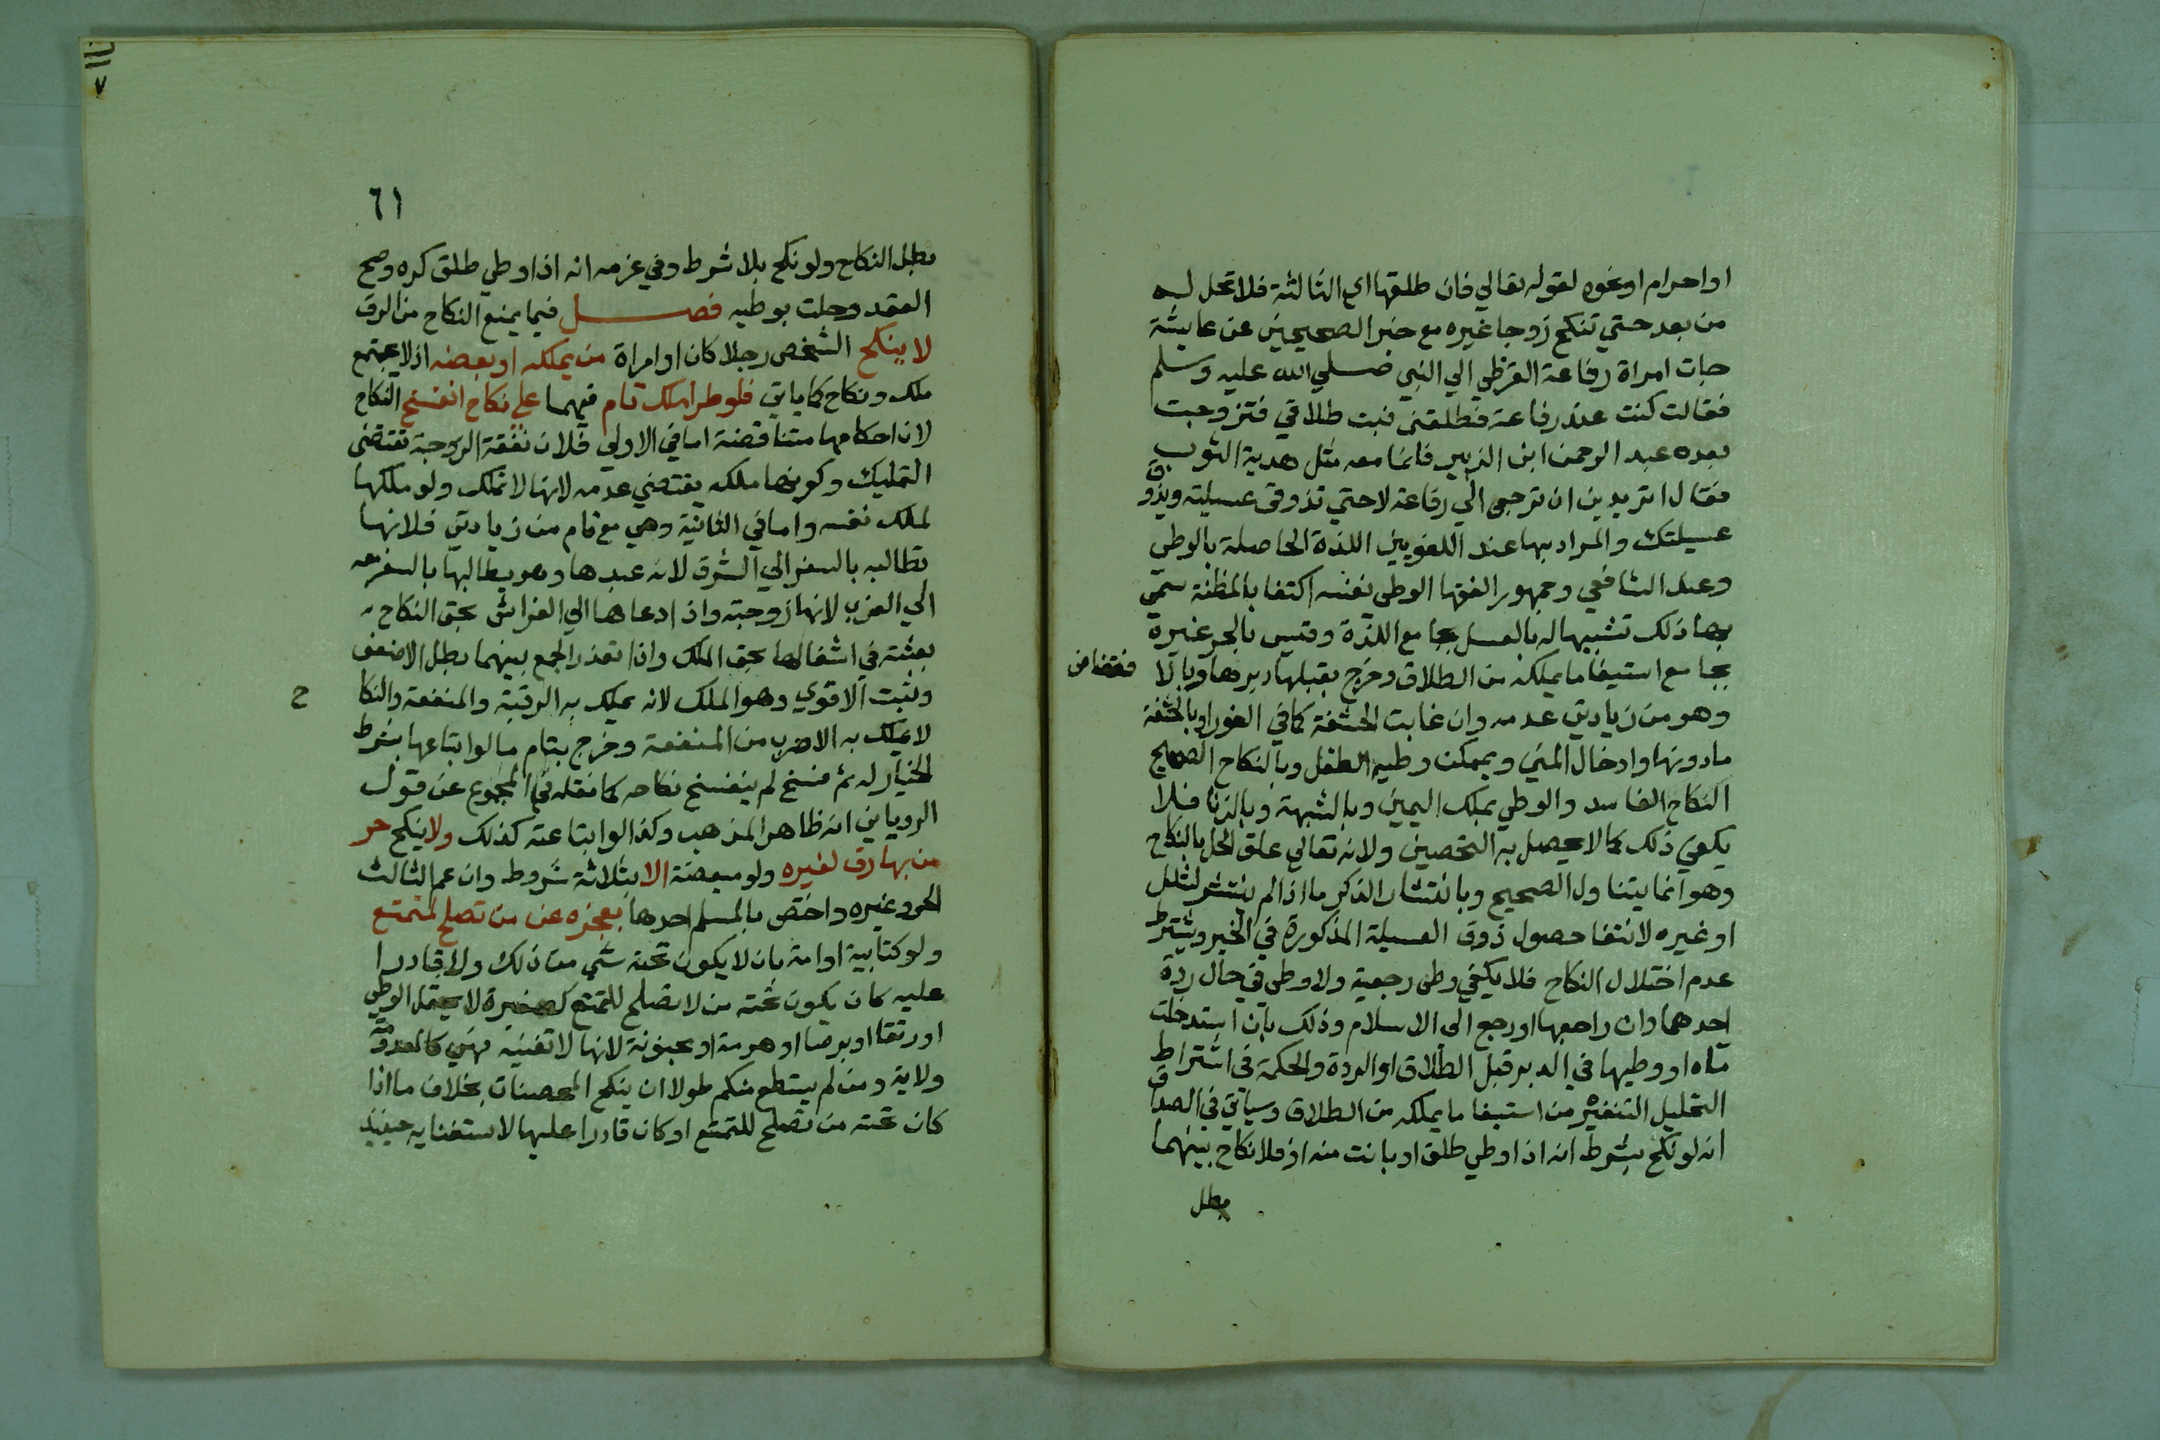 او احرام او نحوه لقوله تعالي فان طلقها اي الثالثة فلا تحل له
من بعد حتي تنكح زوجا غيره مع خبر الصحيحين عن عايشة
جات امراة رفاعة القرظي الي النبي صلي الله عليه وسلم
فقالت كنت عند رفاعة فطلقني فبت طلاقي فتزوجت
بعده عبد الرحمن ابن الزبير فانما معه مثل هدبة الثوب
فقال اتريدين ان ترجعي الي رفاعة لا حتي تذوقي عسيلته ويذوق
عسيلتك والمراد بها عند اللغويين اللذة الحاصلة بالوطي
وعند الشافعي وجمهور الفقها الوطي نفسه اكتفا بالمظنة سمي
بها ذلك تشبيها له بالعسل بجامع اللذة وقيس بالحر غيره
بجامع استيفا ما يملكه من الطلاق وخرج بقبلها دبرها وبالا
فتضاض
وهو من زيادتي عدمه وان غابت الحشفة كما في الغورا وبالحشفة
ما دونها وادخال المني وبممكن وطيه الطفل وبالنكاح الصحيح
النكاح الفاسد والوطي بملك اليمين وبالشبهة وبالزنا فلا
يكفي ذلك كما لا يحصل به التحصين ولانه تعالي علق الحل بالنكاح
وهو انما يتناول الصحيح وبانتشار الذكر ما اذا لم ينتشر لشلل
او غيره لانتفا حصول ذوق العسيلة المذكورة في الخبر ويشترط
عدم اختلال النكاح فلا يكفي وطي رجعية ولا وطي في حال ردة
احدهما وان راجعها او رجع الي الاسلام وذلك بان استدخلت
ماه او وطيها في الدبر قبل الطلاق او الردة والحكمة في اشتراط
التحليل التنفير من استيفا ما يملكه من الطلاق وسياتي في الصداق
انه لو نكح بشرط انه اذا وطي طلق او بانت منه او فلا نكاح بينهما
بطل
٦١
بطل النكاح ولو نكح بلا شرط وفي عزمه انه اذا وطي طلق كره وصح
العقد وحلت بوطيه فصل فيما يمنع النكاح من الرق
لا ينكح الشخص رجلا كان او امراة من يملكه او بعضه اذ لا يجتمع
ملك ونكاح كما ياتي فلو طرا ملك تام فيهما علي نكاح انفسخ النكاح
لان احكامهما متناقضة اما في الاولي فلان نفقة الزوجة تقتضي
التمليك وكونها ملكه يقتضي عدمه لانها لا تملك ولو ملكها
لملك نفسه واما في الثانية وهي مع تام من زيادتي فلانها
تطالبه بالسفر الي الشرق لانه عبدها وهو يطالبها بالسفر معه
الي الغرب لانها زوجته واذا دعاها الي الفراش بحق النكاح
بعثته في اشغالها بحق الملك واذا تعذر الجمع بينهما بطل الاضعف
وثبت الاقوي وهو الملك لانه يملك به الرقبة والمنفعة والنكا
ح
لا يملك به الا ضرب من المنفعة وخرج بتام ما لو ابتاعها بشرط
الخيار له ثم فسخ لم ينفسخ نكاحه كما نقله في المجموع عن قول
الروياني انه ظاهر المذهب وكذا لو ابتاعته كذلك ولا ينكح حر
من بها رق لغيره ولو مبعضة الا بثلاثة شروط وان عم الثالث
الحر وغيره واختص بالمسلم احدها بعجزه عن من تصلح لتمتع
ولو كتابية او امة بان لا يكون تحته شي من ذلك ولا قادرا
عليه كان يكون تحته من لا تصلح للتمتع كصغيرة لا يحتمل الوطي
او رتقا او برصا او هرمة او مجنونة لانها لا تغنيه فهي كالمعدومة
ولاية ومن لم يستطع منكم طولا ان ينكح المحصنات بخلاف ما اذا
كان تحته من تصلح للتمتع او كان قادرا عليها لاستغنايه حينيذ